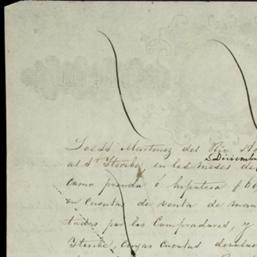 Los SS Martinez del Rio
al Sr Iturbe en los meses de
Diciembre
como prenda ó hipoteca
en Cuentas de venta de
por los Compradores, y
Iturbe, cuyas cuentas